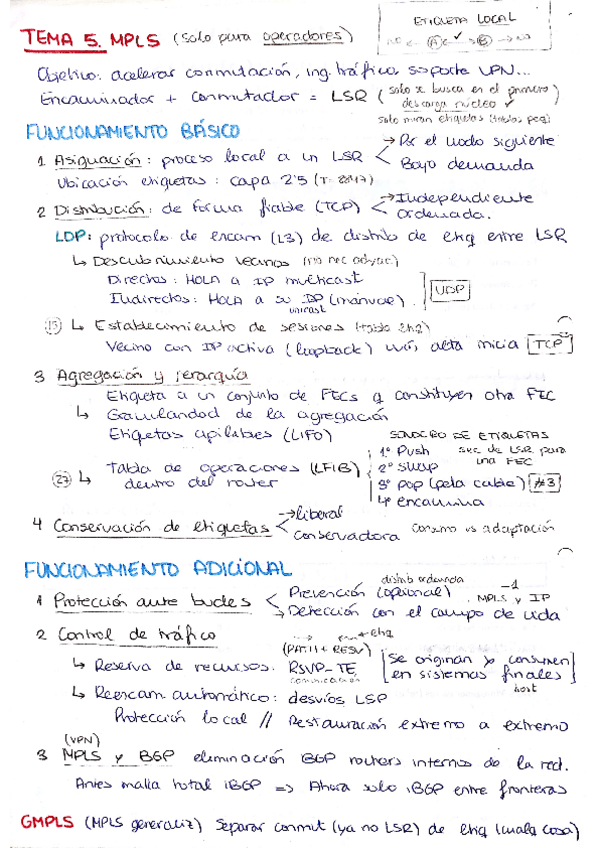 TEMA 5. MPLS (solo para operadores)
ETIQUETA LOCAL
Objetivo: acelerar conmutación, ing. tráfico, soporte VPN...
Encaminador + Conmutador = LSR (solo se busca en el primero
descarga núcleo ✓
solo miran etiquetas (tablas peq)
FUNCIONAMIENTO BÁSICO
1 Asignación: proceso local a un LSR < → Por el nodo siguiente
Bajo demanda
Ubicación etiquetas: capa 2'5 (T. 8847)
2 Distribución: de forma fiable (TCP) < → Independiente
ordenada.
LDP: protocolo de encam (L3) de distrib de etiq entre LSR
↳ Descubrimiento vecinos (no nec adyac)
Directos: HOLA a IP multicast
Indirectos: HOLA a su IP (manual)
unicast
UDP
(13) ↳ Establecimiento de sesiones (tabla etiq)
Vecino con IP activa (loopback) más alta inicia TCP
3 Agregación y jerarquía
Etiqueta a un conjunto de FECs q constituyen otra FEC
↳ Granularidad de la agregación
Etiquetas apilables (LIFO)
SENDERO DE ETIQUETAS
sec de LSR para
una FEC
(27) ↳ Tabla de operaciones (LFIB)
dentro del router
1º Push
2º swap
3º pop (pela cable) #3
4º encamina
4 Conservación de etiquetas < → liberal
conservadora
Consumo vs adaptación
FUNCIONAMIENTO ADICIONAL
distrib ordenada
1 Protección ante bucles < Prevención (opcional)
-1
MPLS y IP
→ Detección con el campo de vida
2 Control de tráfico
etiq
(PATH + RESV)
↳ Reserva de recursos: RSVP-TE
comunicación
[Se originan y consumen
en sistemas finales]
host
↳ Reencam automático: desvíos LSP
Protección local // Restauración extremo a extremo
(VPN)
3 MPLS y BGP eliminación BGP routers internos de la red.
Antes malla total iBGP => Ahora solo iBGP entre fronteras
GMPLS (MPLS generaliz) Separar conmut (ya no LSR) de etiq (cualq cosa)